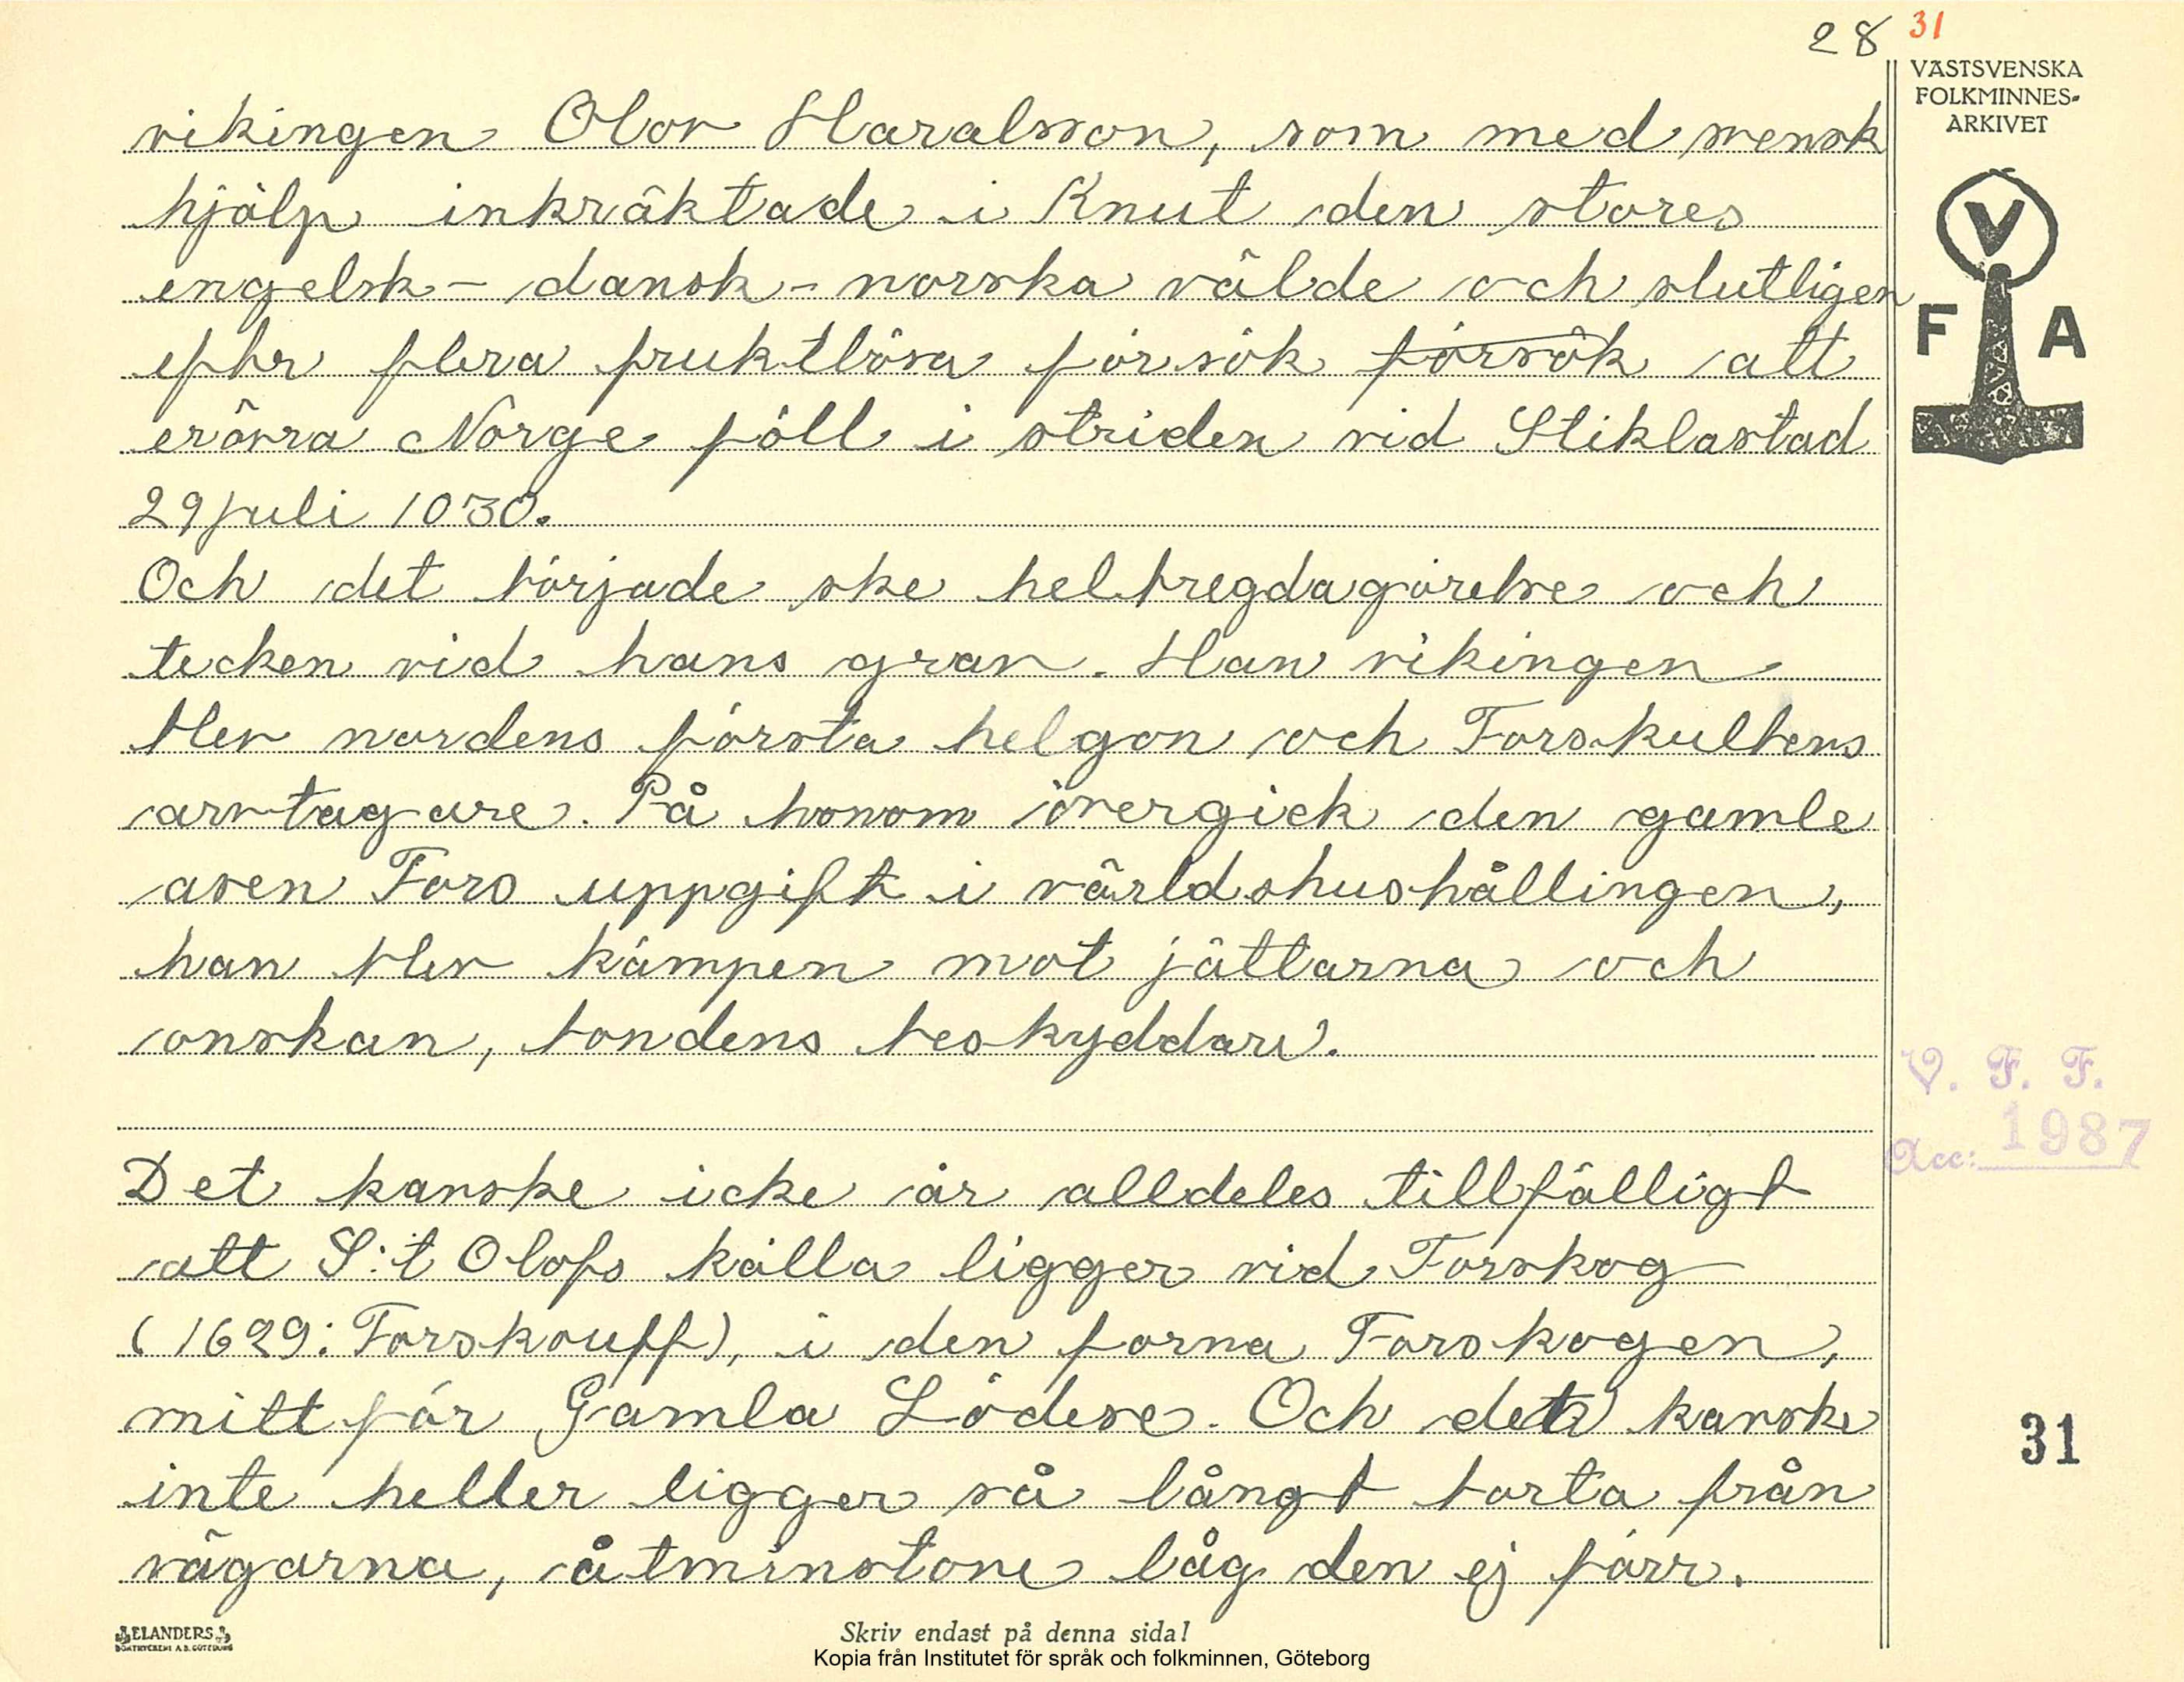 28 31
VÄSTSVENSKA
FOLKMINNES-
ARKIVET
V
F A
vikingen Olov Haralsson, som med svensk
hjälp inkräktade i Knut den stores
engelsk - dansk - norska välde och slutligen
efter flera fruktlösa försök försök att
erövra Norge föll i striden vid Stiklastad
29 juli 1030.
Och det började ske helbregdagörelse och
tecken vid hans grav. Han vikingen
blev nordens första helgon och Torskultens
arvtagare. På honom övergick den gamle
asen Tors uppgift i världshushållingen,
han blev kämpen mot jättarna och
onskan, bondens beskyddare.
Det kanske icke är alldeles tillfälligt
att S:t Olofs källa ligger vid Torskog
(1629: Torskouff), i den forna Torskogen,
mitt för Gamla Lödese. Och det kanske
inte heller ligger så långt borta från
vägarna, åtminstone låg den ej färr.
V. F. F.
Acc: 1987
31
ELANDERS
BOKTRYCKERI A.B. GÖTEBORG
Skriv endast på denna sida!
Kopia från Institutet för språk och folkminnen, Göteborg